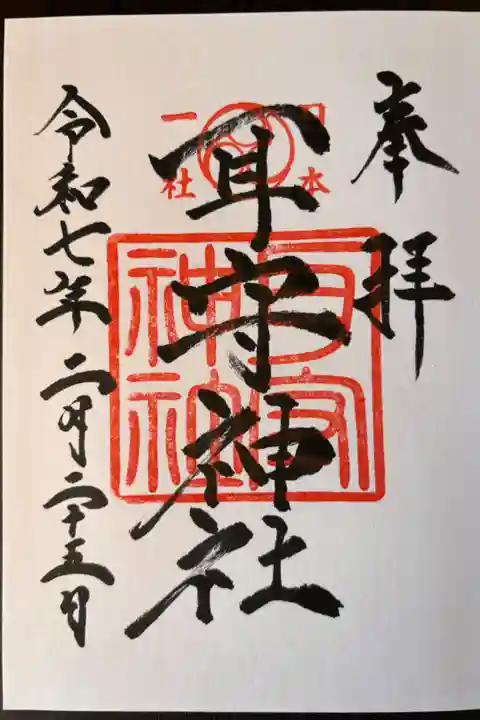 奉拝
日本
一社
耳守神社
耳守神社
令和七年二月二十五日